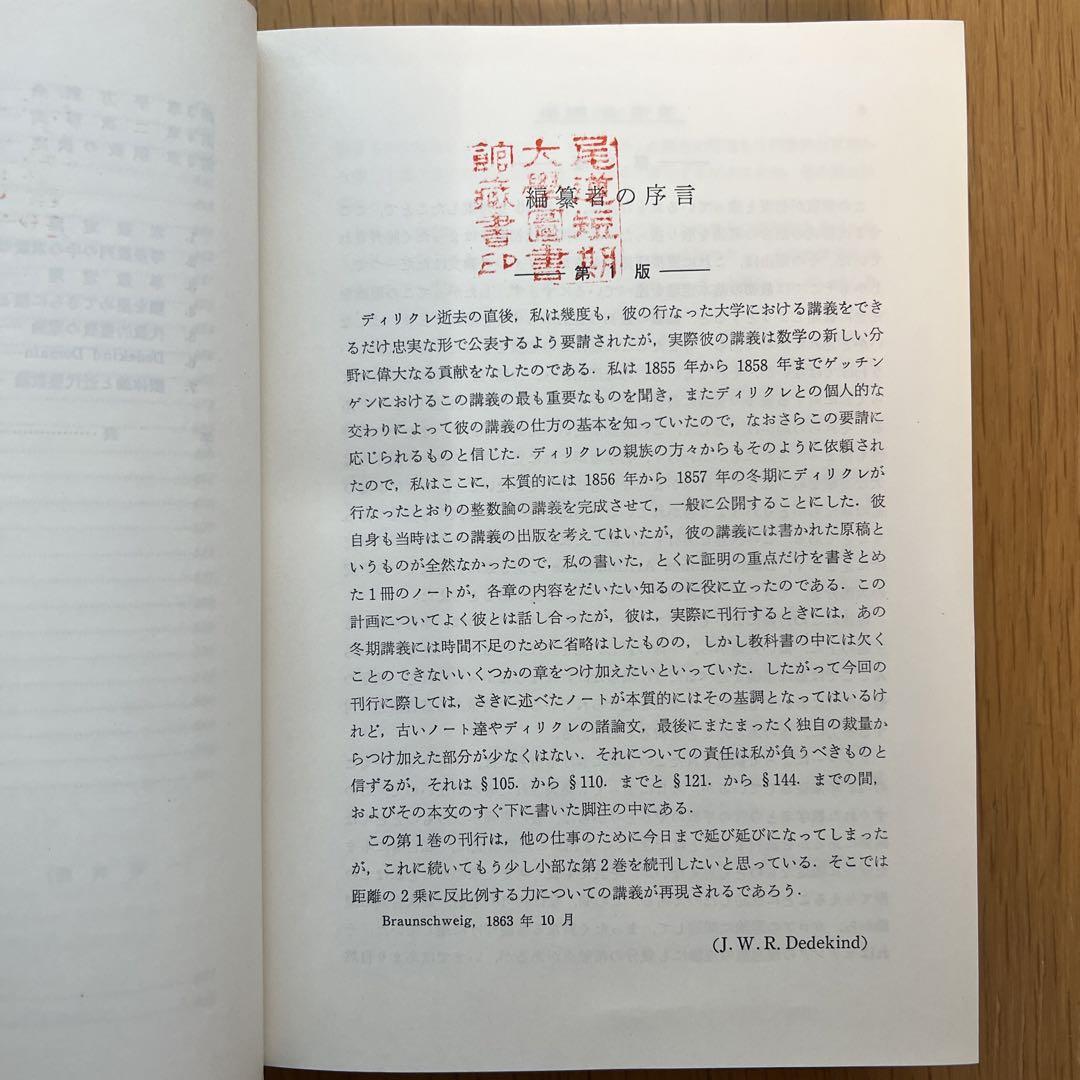 尾道短期
大學圖書
館藏書印
編纂者の序言
第1版
ディリクレ逝去の直後，私は幾度も，彼の行なった大学における講義をでき
るだけ忠実な形で公表するよう要請されたが，実際彼の講義は数学の新しい分
野に偉大なる貢献をなしたのである．私は 1855 年から 1858 年までゲッチン
ゲンにおけるこの講義の最も重要なものを聞き，またディリクレとの個人的な
交わりによって彼の講義の仕方の基本を知っていたので，なおさらこの要請に
応じられるものと信じた．ディリクレの親族の方々からもそのように依頼され
たので，私はここに，本質的には 1856 年から 1857 年の冬期にディリクレが
行なったとおりの整数論の講義を完成させて，一般に公開することにした．彼
自身も当時はこの講義の出版を考えてはいたが，彼の講義には書かれた原稿と
いうものが全然なかったので，私の書いた，とくに証明の重点だけを書きとめ
た1冊のノートが，各章の内容をだいたい知るのに役に立ったのである．この
計画についてよく彼とは話し合ったが，彼は，実際に刊行するときには，あの
冬期講義には時間不足のために省略はしたものの，しかし教科書の中には欠く
ことのできないいくつかの章をつけ加えたいといっていた．したがって今回の
刊行に際しては，さきに述べたノートが本質的にはその基調となってはいるけ
れど，古いノート達やディリクレの諸論文，最後にまたまったく独自の裁量か
らつけ加えた部分が少なくはない．それについての責任は私が負うべきものと
信ずるが，それは §105. から §110. までと §121. から §144. までの間，
およびその本文のすぐ下に書いた脚注の中にある．
この第1巻の刊行は，他の仕事のために今日まで延び延びになってしまった
が，これに続いてもう少し小部な第2巻を続刊したいと思っている．そこでは
距離の2乗に反比例する力についての講義が再現されるであろう．
Braunschweig, 1863 年 10 月
(J. W. R. Dedekind)